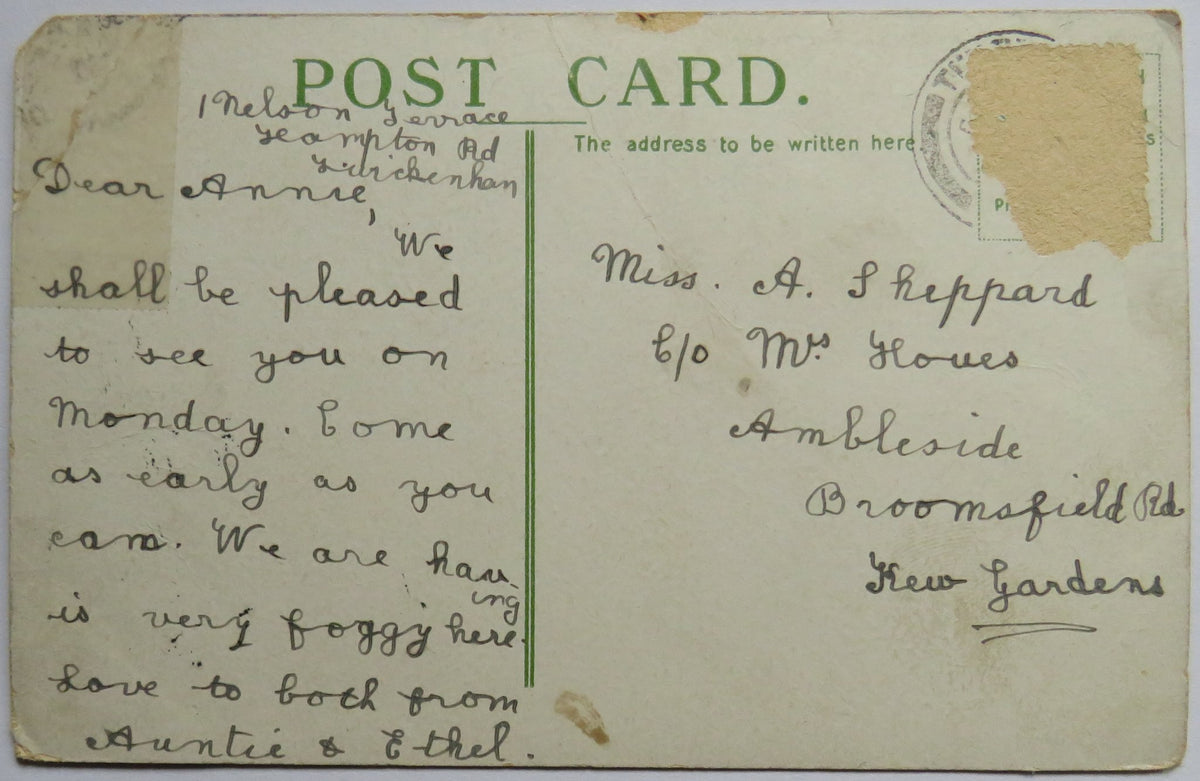 POST CARD.
The address to be written here.
1 Nelson Terrace
Hampton Rd
Twickenham
Dear Annie,
We
shall be pleased
to see you on
Monday. Come
as early as you
can. We are hav-
ing
is very foggy here.
Love to both from
Auntie & Ethel.
Miss. A. Sheppard
C/o Mrs Howes
Ambleside
Broomsfield Rd
Kew Gardens